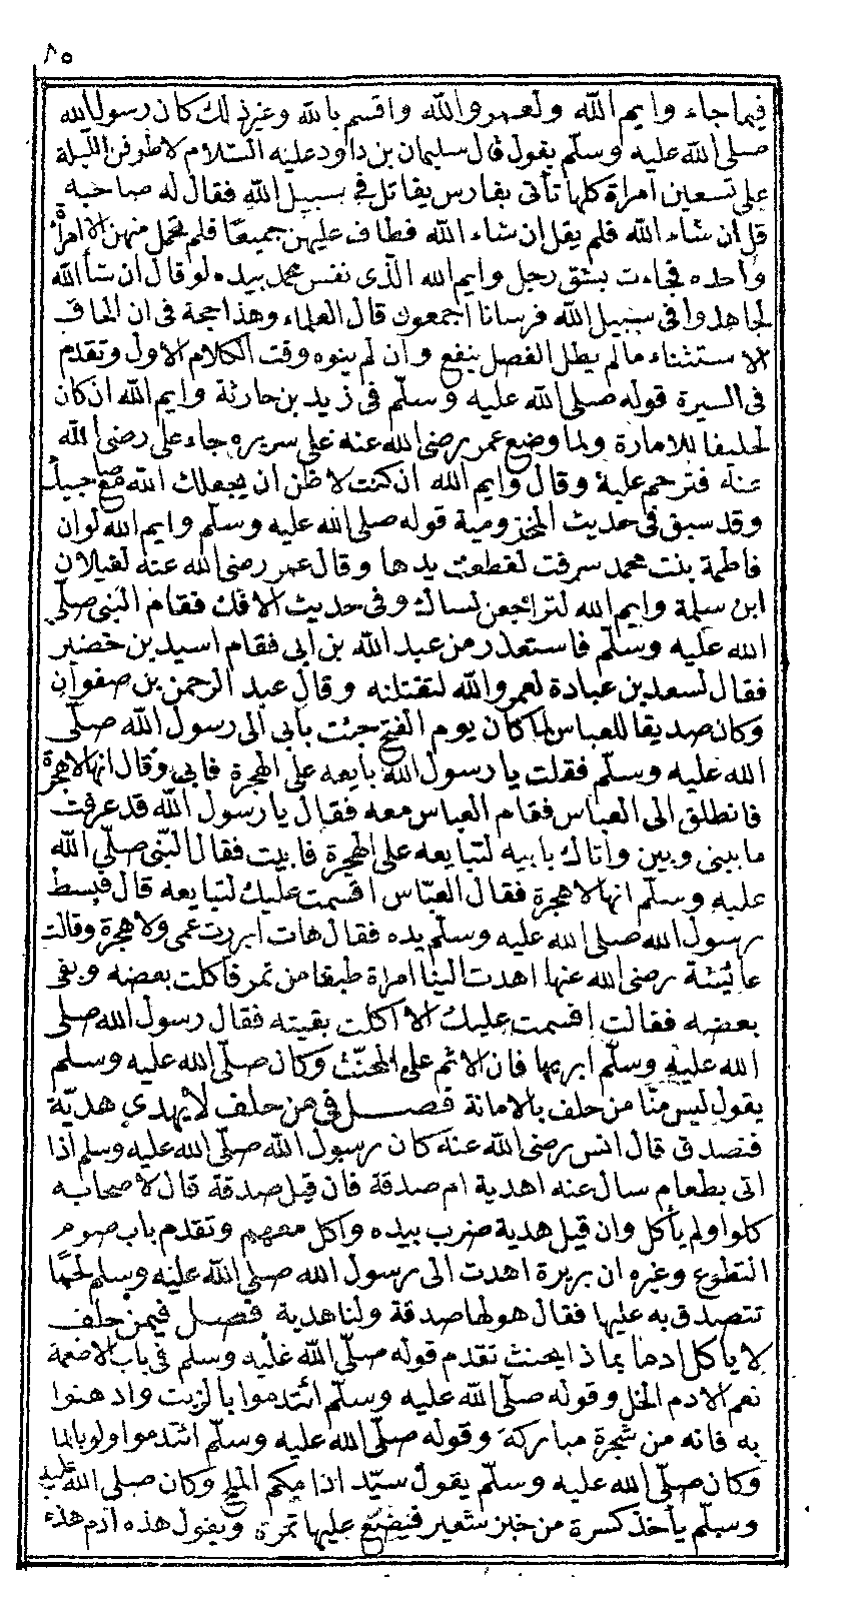 ٨٥
فيما جاء وايم الله ولعمر والله واقسم بالله وغير ذلك كان رسول الله
صلى الله عليه وسلم يقول قال سليمان بن داود عليه السلام لاطوفن الليلة
على تسعين امراة كلها تأتى بفارس يقاتل فى سبيل الله فقال له صاحبه
قل ان شاء الله فلم يقل ان شاء الله فطاف عليهن جميعا فلم تحمل منهن الا امرأة
واحده فجاءت بشق رجل وايم الله الذى نفس محمد بيده لو قال ان شأ الله
لجاهدوا فى سبيل الله فرسانا اجمعون قال العلماء وهذا حجة فى ان الحاق
الاستثناء مالم يطل الفصل ينفع وان لم ينوه وقت الكلام الاول وتقدم
فى السيرة قوله صلى الله عليه وسلم فى زيد بن حارثة وايم الله ان كان
لخليقا للامارة ولما وضع عمر رضى الله عنه على سريره جاء على رضى الله
عنه فترحم عليه وقال وايم الله ان كنت لاظن ان يجعلك الله مع صاحبيك
وقد سبق فى حديث المخزومية قوله صلى الله عليه وسلم وايم الله لو ان
فاطمة بنت محمد سرقت لقطعت يدها وقال عمر رضى الله عنه لغيلان
ابن سلمة وايم الله لتراجعن نساك وفى حديث الافك فقام النبى صلى
الله عليه وسلم فاستعذر من عبد الله بن ابى فقام اسيد بن خضير
فقال لسعد بن عبادة لعمر والله لنقتلنه وقال عبد الرحمن بن صفوان
وكان صديقا للعباس لما كان يوم الفتح جئت بابى الى رسول الله صلى
الله عليه وسلم فقلت يا رسول الله بايعه على الهجرة فابى وقال انها لا هجرة
فانطلق الى العباس فقام العباس معه فقال يا رسول الله قد عرفت
ما بينى وبين واتاك بابيه لتبايعه على الهجرة فابيت فقال النبى صلى الله
عليه وسلم انها لا هجرة فقال العباس اقسمت عليك لتبايعه قال فبسط
رسول الله صلى الله عليه وسلم يده فقال هات ابررت عمى ولا هجرة وقالت
عائيشة رضى الله عنها اهدت الينا امراة طبقا من تمر فاكلت بعضه وبقى
بعضه فقالت اقسمت عليك الا اكلت بقيته فقال رسول الله صلى
الله عليه وسلم ابريها فان الاثم على المحنث وكان صلى الله عليه وسلم
يقول ليس منا من حلف بالامانة فصل فى من حلف لا يهدى هدية
فتصدق قال انس رضى الله عنه كان رسول الله صلى الله عليه وسلم اذا
اتى بطعام سال عنه اهدية ام صدقة فان قيل صدقة قال لاصحابه
كلوا ولم يأكل وان قيل هدية ضرب بيده واكل معهم وتقدم باب صوم
التطوع وغيره ان بريرة اهدت الى رسول الله صلى الله عليه وسلم لحما
تتصدق به عليها فقال هو لها صدقة ولنا هدية فصل فيمن حلف
لا ياكل ادما بماذا يحنث تقدم قوله صلى الله عليه وسلم فى باب الاضعمة
نعم الادم الخل وقوله صلى الله عليه وسلم ائتدموا بالزيت وادهنوا
به فانه من شجرة مباركة وقوله صلى الله عليه وسلم ائتدموا ولو بالما
وكان صلى الله عليه وسلم يقول سيد ادامكم الملح وكان صلى الله عليه
وسلم يأخذ كسرة من خبز شعير فيضع عليها تمرة ويقول هذه ادم هذه